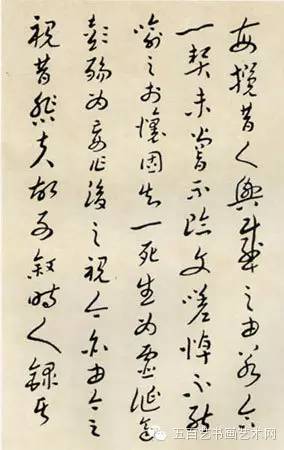 每攬昔人興感之由若合
一契未嘗不臨文嗟悼不能
喻之於懷固知一死生為虛誕齊
彭殤為妄作後之視今亦由今之
視昔悲夫故列敘時人錄其
五百艺书画艺术网